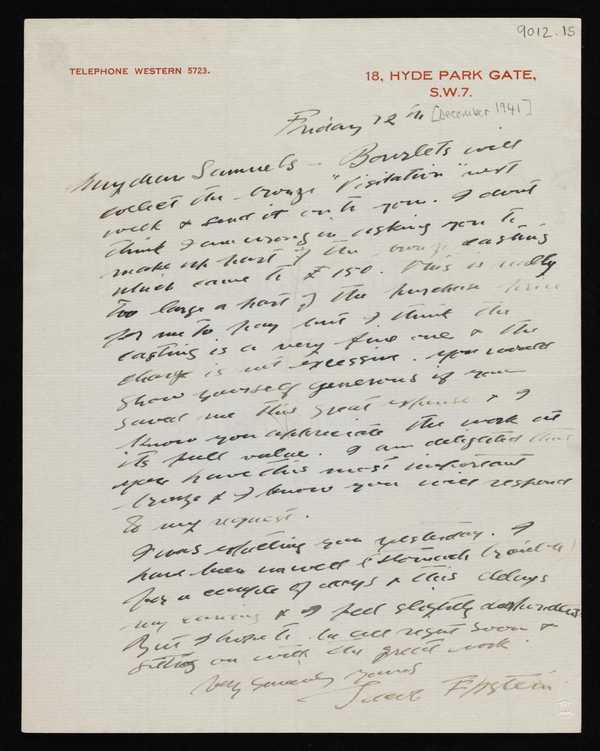 9012.15
TELEPHONE WESTERN 5723.
18, HYDE PARK GATE,
S.W.7.
Friday 12th [December 1941]
My dear Samuels – Bourlets will
collect the bronze "Visitation" next
week & send it on to you. I don't
think I am wrong in asking you to
make up part of the bronze casting
which came to £150. This is really
too large a part of the purchase price
for me to pay but I think the
casting is a very fine one & the
charge is not excessive. You would
show yourself generous if you
saved me this great expense & I
know you appreciate the work at
its full value. I am delighted that
you have this most important
bronze & I know you will respond
to my request.
I was expecting you yesterday. I
have been unwell (stomach trouble)
for a couple of days & this delays
my & I feel slightly despondent
But I hope to be all right soon &
getting on with the great work.
Very sincerely yours
Jacob Epstein